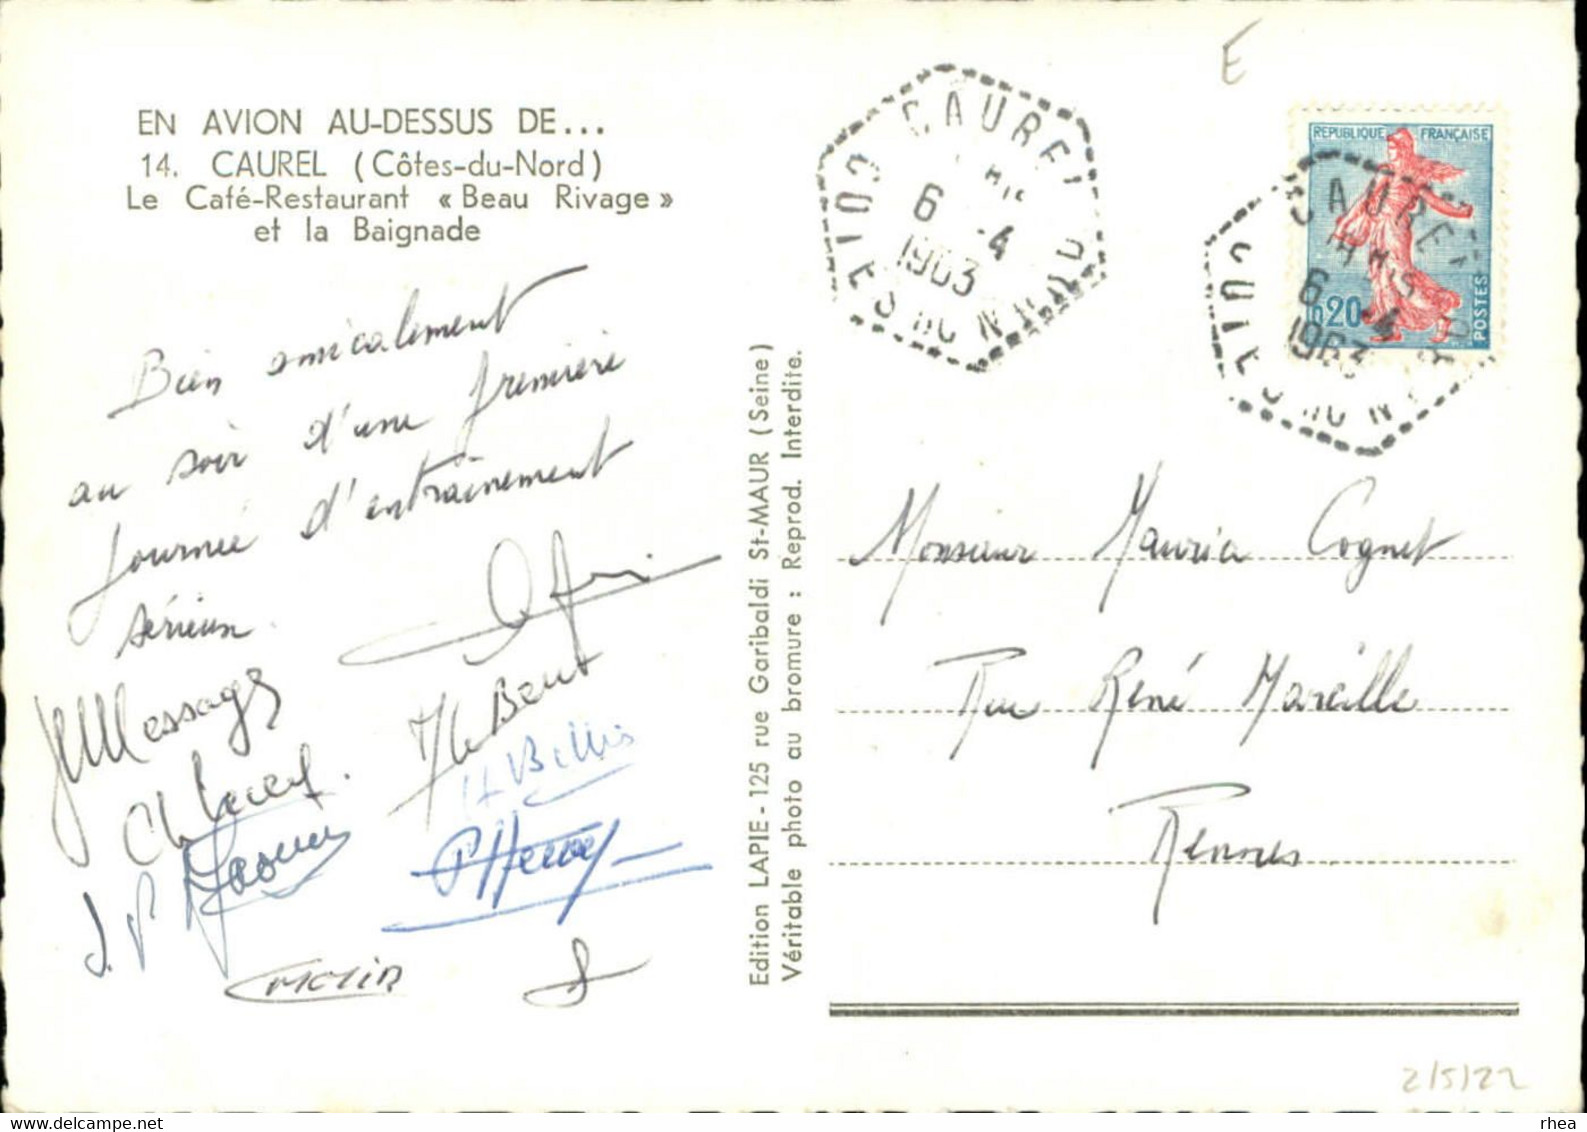 EN AVION AU-DESSUS DE...
14. CAUREL (Côtes-du-Nord)
Le Café-Restaurant « Beau Rivage »
et la Baignade
Bien amicalement
au soir d'une première
journée d'entraînement
sérieux.
Message
H Bellis
PHervey
MORIN
J.P
Edition LAPIE - 125 rue Garibaldi St-MAUR (Seine)
Véritable photo au bromure : Reprod. Interdite.
E
CAUREL
6 -4
1963
COTES DU NORD
REPUBLIQUE FRANÇAISE
0,20
POSTES
CAUREL
6 -4
1963
COTES DU NORD
Monsieur Maurice Cognet
Rue René Mareille
Rennes
2/5/22
rhea